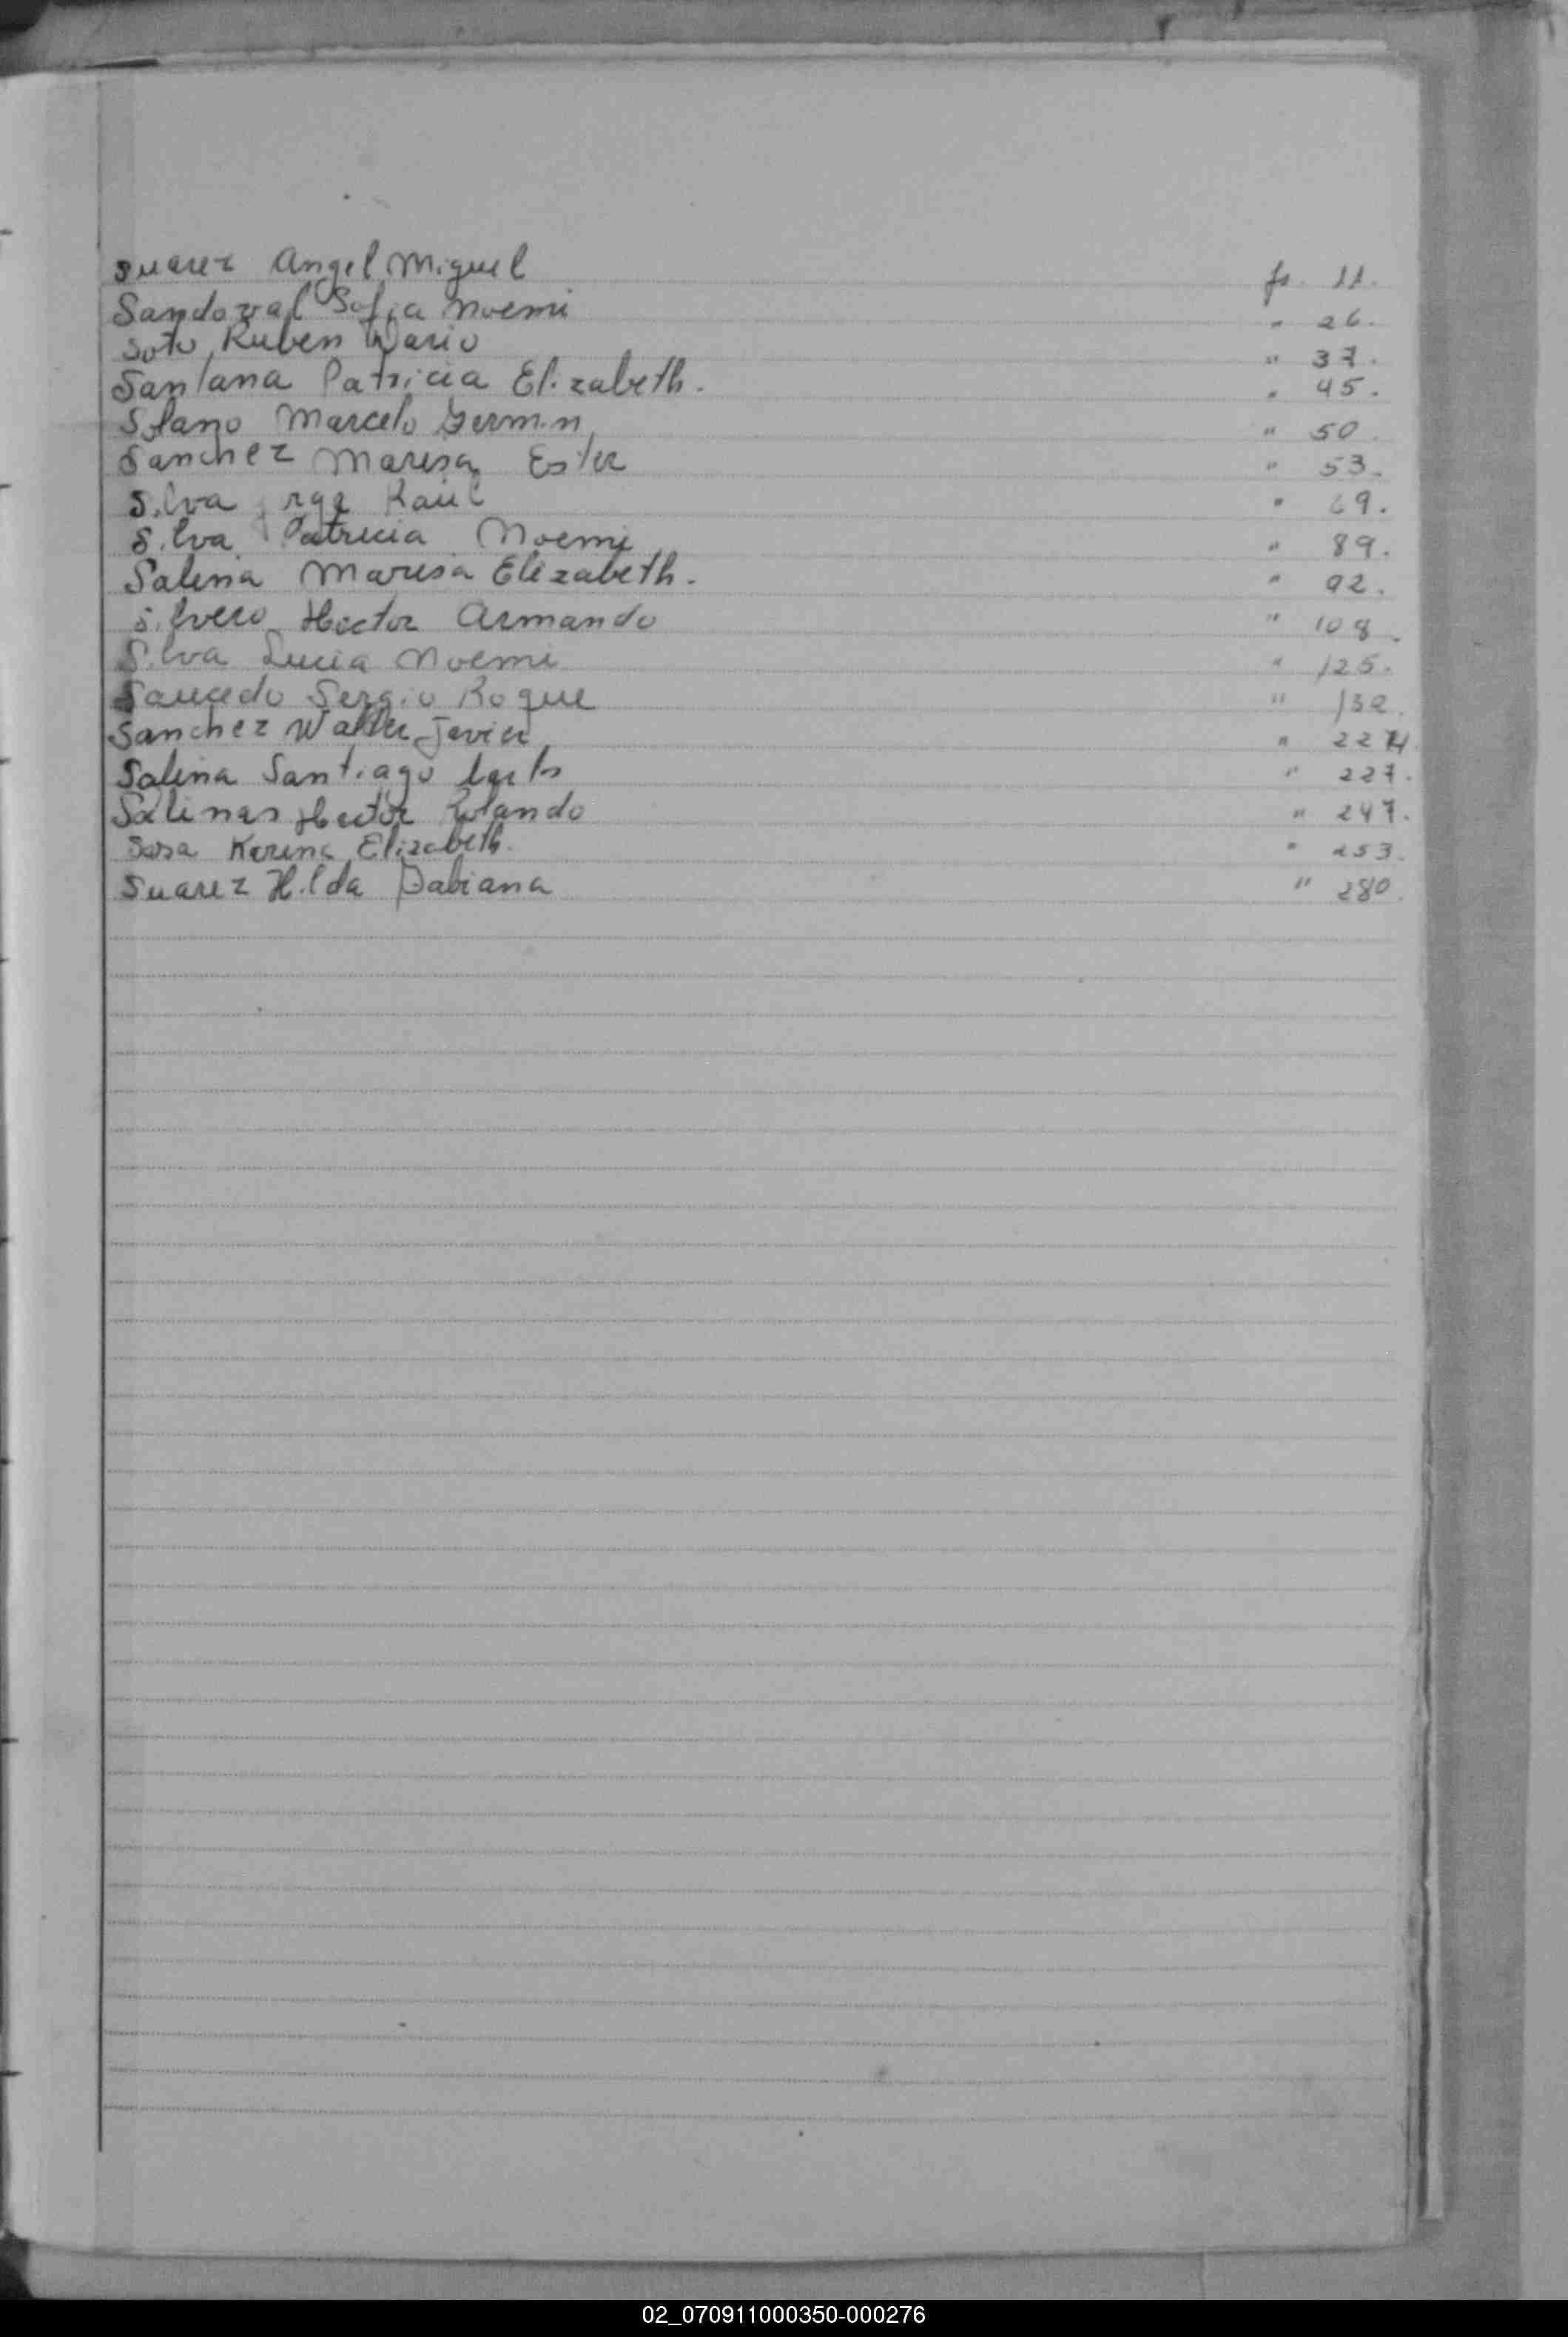 Suarez Angel Miguel fs. 11.
Sandoval Sofia Noemi " 26.
Soto, Ruben Dario " 37.
Santana Patricia Elizabeth. " 45.
Solano Marcelo Germ.n " 50.
Sanchez Marisa Ester " 53.
Silva Raúl " 69.
Silva Patricia Noemi " 89.
Salina Marisa Elizabeth. " 92.
Silvero Hector Armando " 108.
Silva Lucia Noemi " 125.
Saucedo Sergio Roque "
Sanchez Walter Javier " 224.
Salina Santiago Carlos " 227.
Salinas Hector Rolando " 247.
Sosa Karina Elizabeth. " 253.
Suarez Hilda Fabiana " 280.
02_070911000350-000276